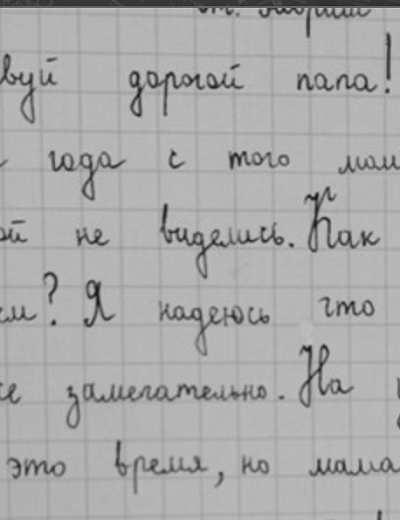 вуй дорогой папа!
года с того мом
ой не виделись. Как
ем? Я надеюсь что
се замечательно. На
это время, но мама